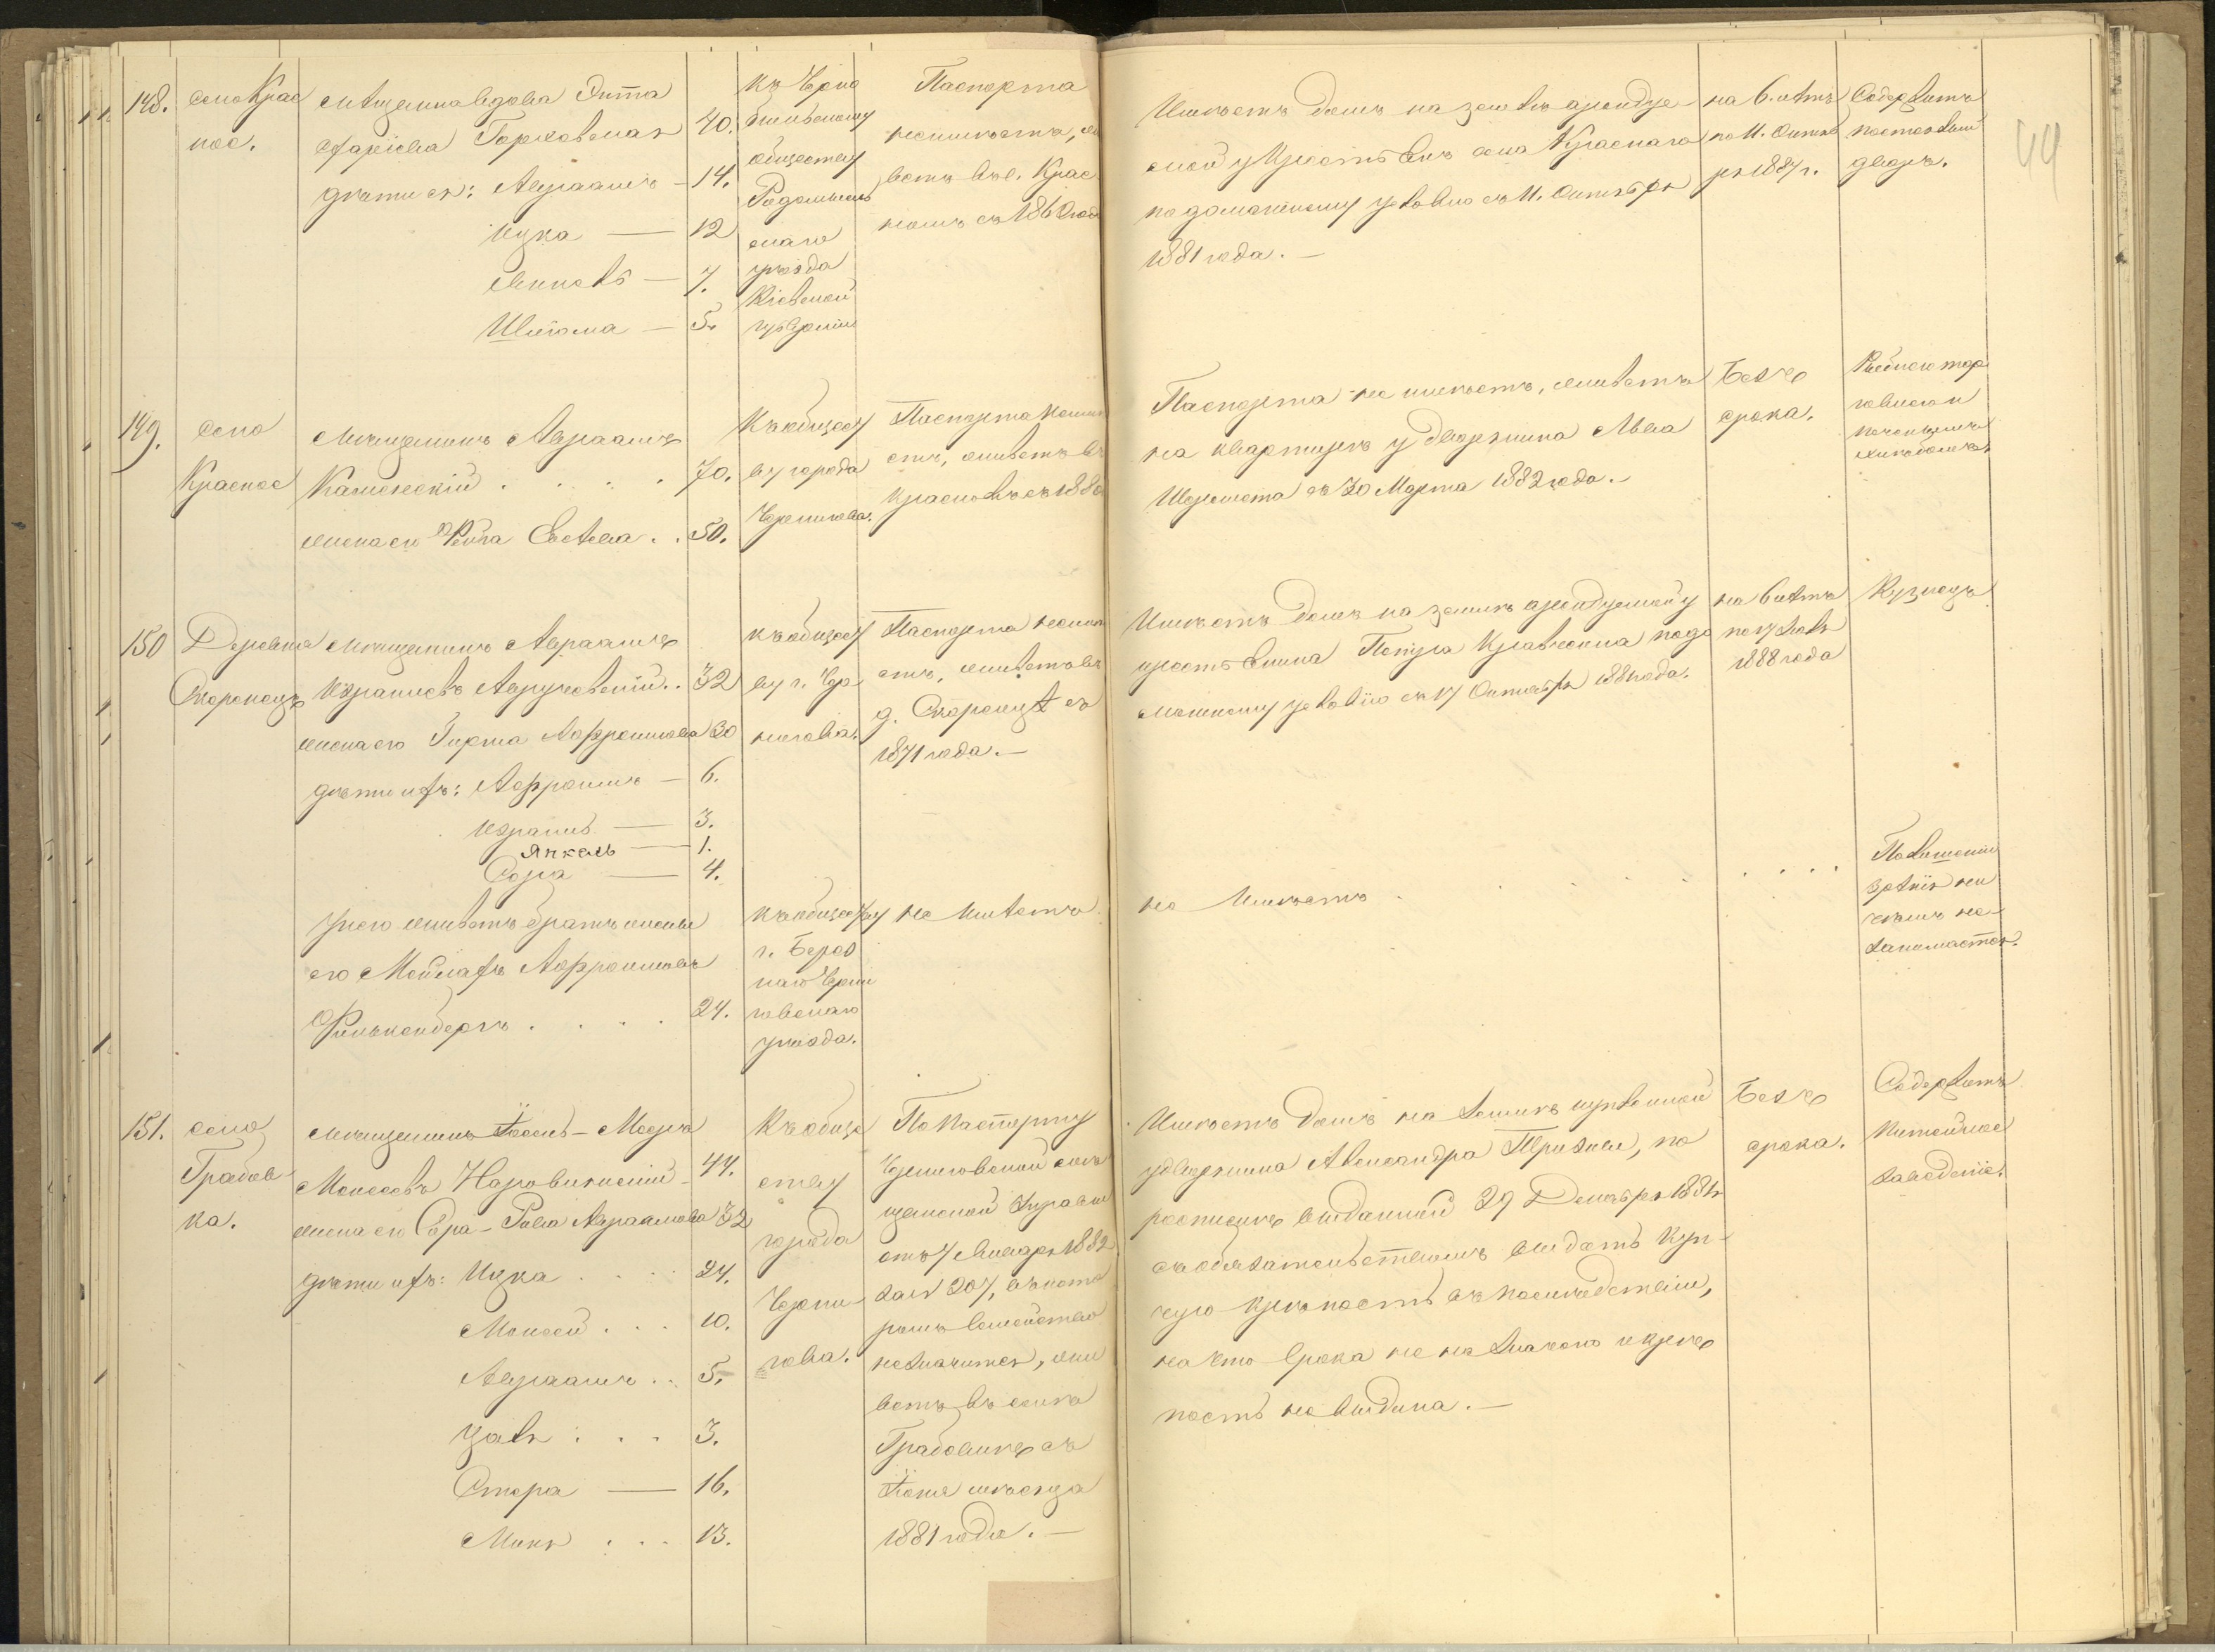 148.
село Крас
ное.
Мѣщанка вдова Этта
Гарковская
40.
дѣти ея: Авраамъ - 14.
Ицка — 12
7.
5.
къ Черно
быльскому
обществу
Радомысль
скаго
уѣзда
Кіевской
губерніи
Паспорта
неимѣетъ, жи
ветъ въ с. Крас
номъ съ 1860 года
Имѣетъ домъ на землѣ арендуе-
мой у крестьянъ села Краснаго
по домашнему условію съ 11. Октября
1881 года. —
на 6. лѣтъ
по 11. Октяб
ря 1887 г.
Содержитъ
постоялый
дворъ.
44
149.
село
Красное
Мѣщанинъ Авраамъ
Каменскій . . . . 70.
жена его Рейза . . 50.
Къ общест
ву города
Чернигова.
Паспорта неимѣ
етъ, живетъ въ
Красномъ съ 1880
Паспорта не имѣетъ, живетъ
на квартирѣ у дворянина Льва
Шеремета съ 30 Марта 1882 года. -
Безъ
срока.
150
Деревня
Скоренецъ
Мѣщанинъ Авраамъ
Израилевъ .. 32
жена его Аффроимова 30
дѣти ихъ: Аффроимъ — 6.
Израиль — 3.
Янкель — 1.
Сора — 4.
У него живетъ братъ жены
его Аффроимовъ
. . . . 24.
къ общест
ву г. Чер
нигова.
Паспорта неимѣ
етъ, живетъ въ
д. Скоренцѣ съ
1871 года. —
Имѣетъ домъ на землѣ арендуемой у
крестьянина Петра Кравченка по до
машнему условію съ 17 Октября 1881 года.
на 6 лѣтъ
1888 года
Кузнецъ
къ обществу
г. Берез
наго Черни
говскаго
уѣзда.
не имѣетъ
не имѣетъ . . . . . . . . .
По лишеніи
зрѣнія ни
чѣмъ не
занимается.
151.
село
Грабов-
ка.
Мѣщанинъ Іосель-Мееръ
Моисеевъ 44.
жена его Сора-Рива Авраамова 32
дѣти ихъ: Ицка . . . 24.
Моисей . . . 10.
Авраамъ . . 5.
. . . 3.
Стера — 16.
. . . 13.
Къ обще
ству
города
Черни-
гова.
По паспорту
Черниговской мѣ
щанской Управы
отъ 7 Января 1882
за № 207, въ кото
ромъ семейство
не значится, жи
ветъ въ селѣ
Грабовкѣ съ
Іюня мѣсяца
1881 года. —
Имѣетъ домъ на землѣ купленной
у дворянина Александра Тризны, по
роспискѣ выданной 29 Декабря 1881 г
съ обязательствомъ выдать куп-
чую крѣпость въ послѣдствіи,
на что срока не назначено и крѣ
пость не выдана. —
Безъ
срока.
Содержитъ
питейное
заведеніе.